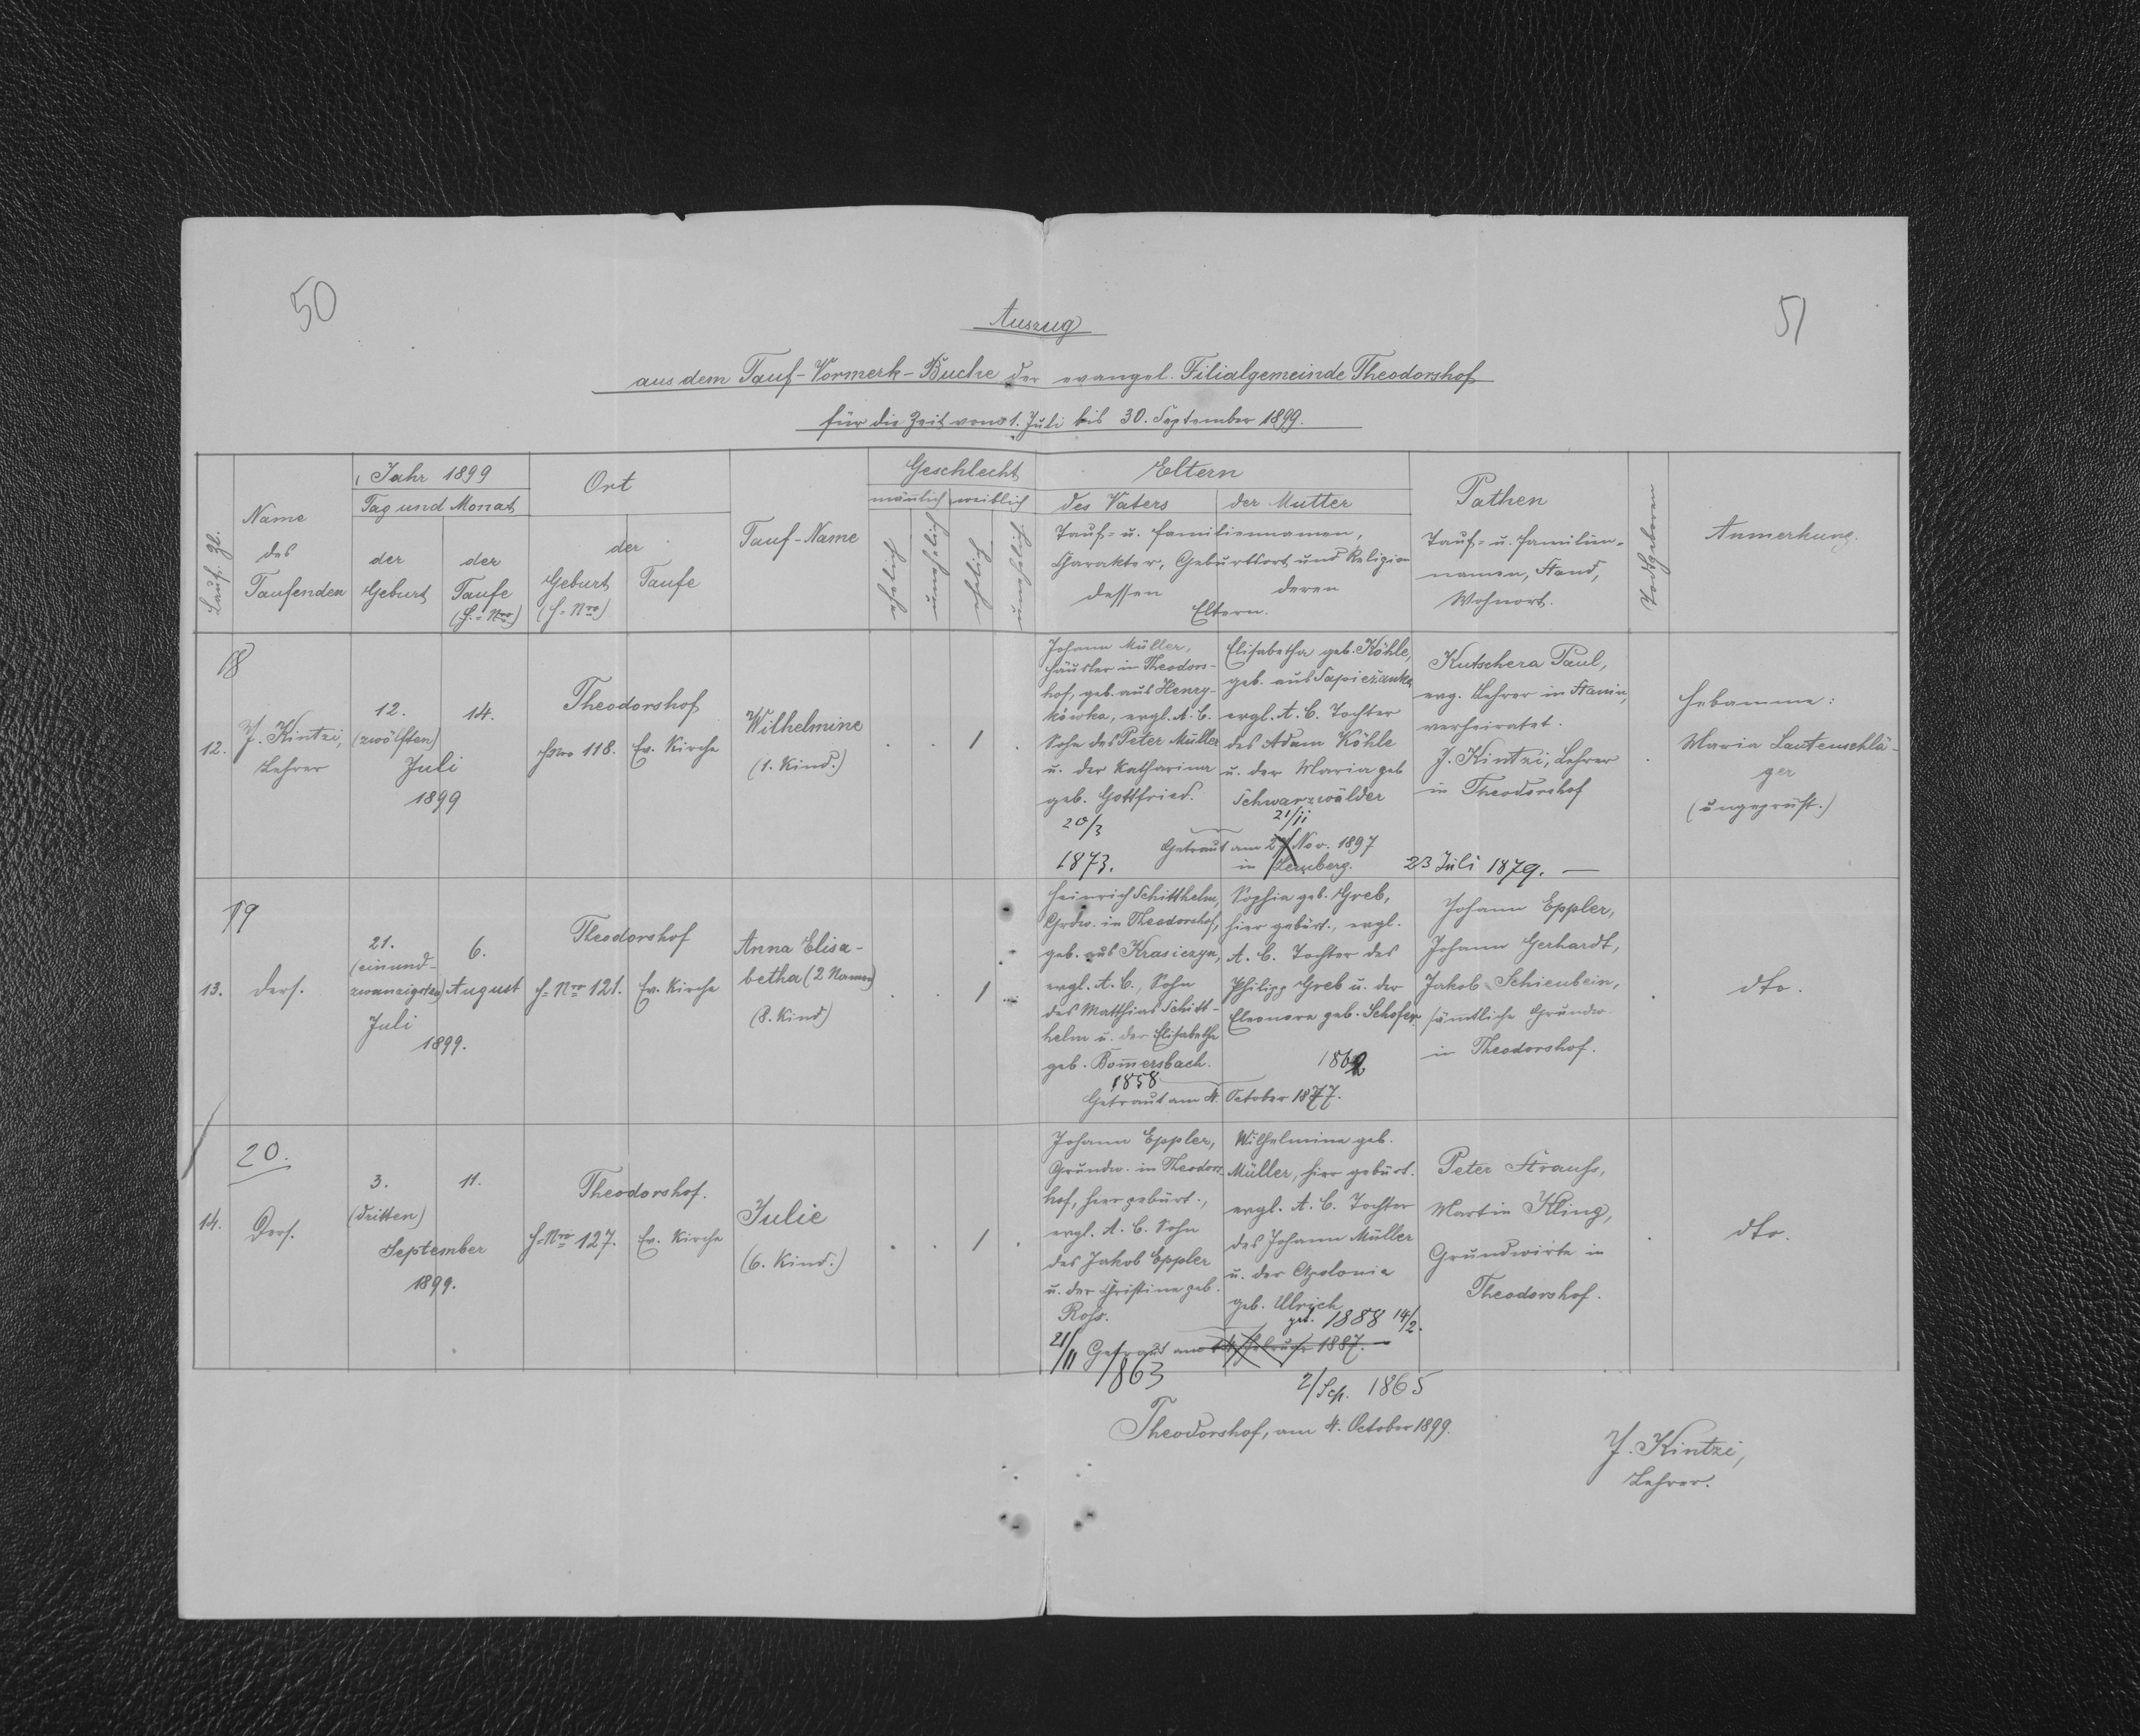 50
51
Auszug
aus dem Tauf-Vormerk-Buche der evangel. Filialgemeinde Theodorshof
für die Zeit vom 1. Juli bis 30. September 1899.
Lauf. Zl.
Name
des
Taufenden
Jahr 1899
Tag und Monat
der
Geburt
der
Taufe
(H.=Nro)
Ort
der
Geburt
(H=Nro)
Taufe
Tauf-Name
Geschlecht
mänlich
weiblich
ehelich
unehelich
ehelich
unehelich
Eltern
des Vaters
der Mutter
Tauf= u. Familiennamen,
Charakter, Geburtsort und Religion
dessen
deren
Eltern.
Pathen
Tauf= u. Familien=
namen, Stand,
Wohnort.
Todtgeboren
Anmerkung.
18
12.
J. Kintzi,
Lehrer
12.
(zwölften)
14.
Juli
1899
Theodorshof
HNro 118.
Ev. Kirche
Wilhelmine
(1. Kind.)
1
Johann Müller,
Häusler in Theodors-
hof, geb. aus Henry-
kówka, evgl. A. C.
Sohn des Peter Müller
u. der Katharina
geb. Gottfried.
20/3
1873.
Elisabetha geb. Köhle,
geb. aus Sapieżanka
evgl. A. C. Tochter
des Adam Köhle
u. der Maria geb
Schwarzwälder
21/11
Getraut am 2 Nov. 1897
in Lemberg.
23 Juli 1879. —
Kutschera Paul,
evg. Lehrer in Stanin,
verheiratet.
J. Kintzi, Lehrer
in Theodorshof
Hebamme:
Maria Lautenschlä-
ger
(ungeprüft.)
19
13.
Ders.
21.
(einund-
zwanzigsten)
Juli
1899.
6.
August
Theodorshof
H=Nro 121.
Ev. Kirche
Anna Elisa-
betha (2 Namen)
(8. Kind)
1
Heinrich Schitthelm,
Grdw. in Theodorshof,
geb. aus Krasiczyn,
evgl. A. C., Sohn
des Matthias Schitt-
helm u. der Elisabetha
geb. Bom̄ersbach.
1858
Sophia geb. Greb,
hier gebürt., evgl.
A. C. Tochter des
Philipp Greb u. der
Eleonora geb. Schofer.
1862
Getraut am 4. October 1877.
Johann Eppler,
Johann Gerhardt,
Jakob Schienbein,
sämtliche Grundw.
in Theodorshof.
dto.
20.
14.
Ders.
3.
(dritten)
11.
September
1899.
Theodorshof.
H=Nro 127.
Ev. Kirche
Julie
(6. Kind.)
1
Johann Eppler,
Grundw. in Theodors-
hof, hier gebürt.,
evgl. A. C. Sohn
des Jakob Eppler
u. der Christine geb.
Roß.
Wilhelmine geb.
Müller, hier gebürt.
evgl. A. C. Tochter
des Johann Müller
u. der Apolonia
geb. Ulrich
get. 1888 14/2.
21/11 Getraut am 14. Februar 1887.
1863
2/Sep. 1865
Peter Strauß,
Martin Kling,
Grundwirte in
Theodorshof.
dto.
Theodorshof, am 4. October 1899.
J. Kintzi,
Lehrer.